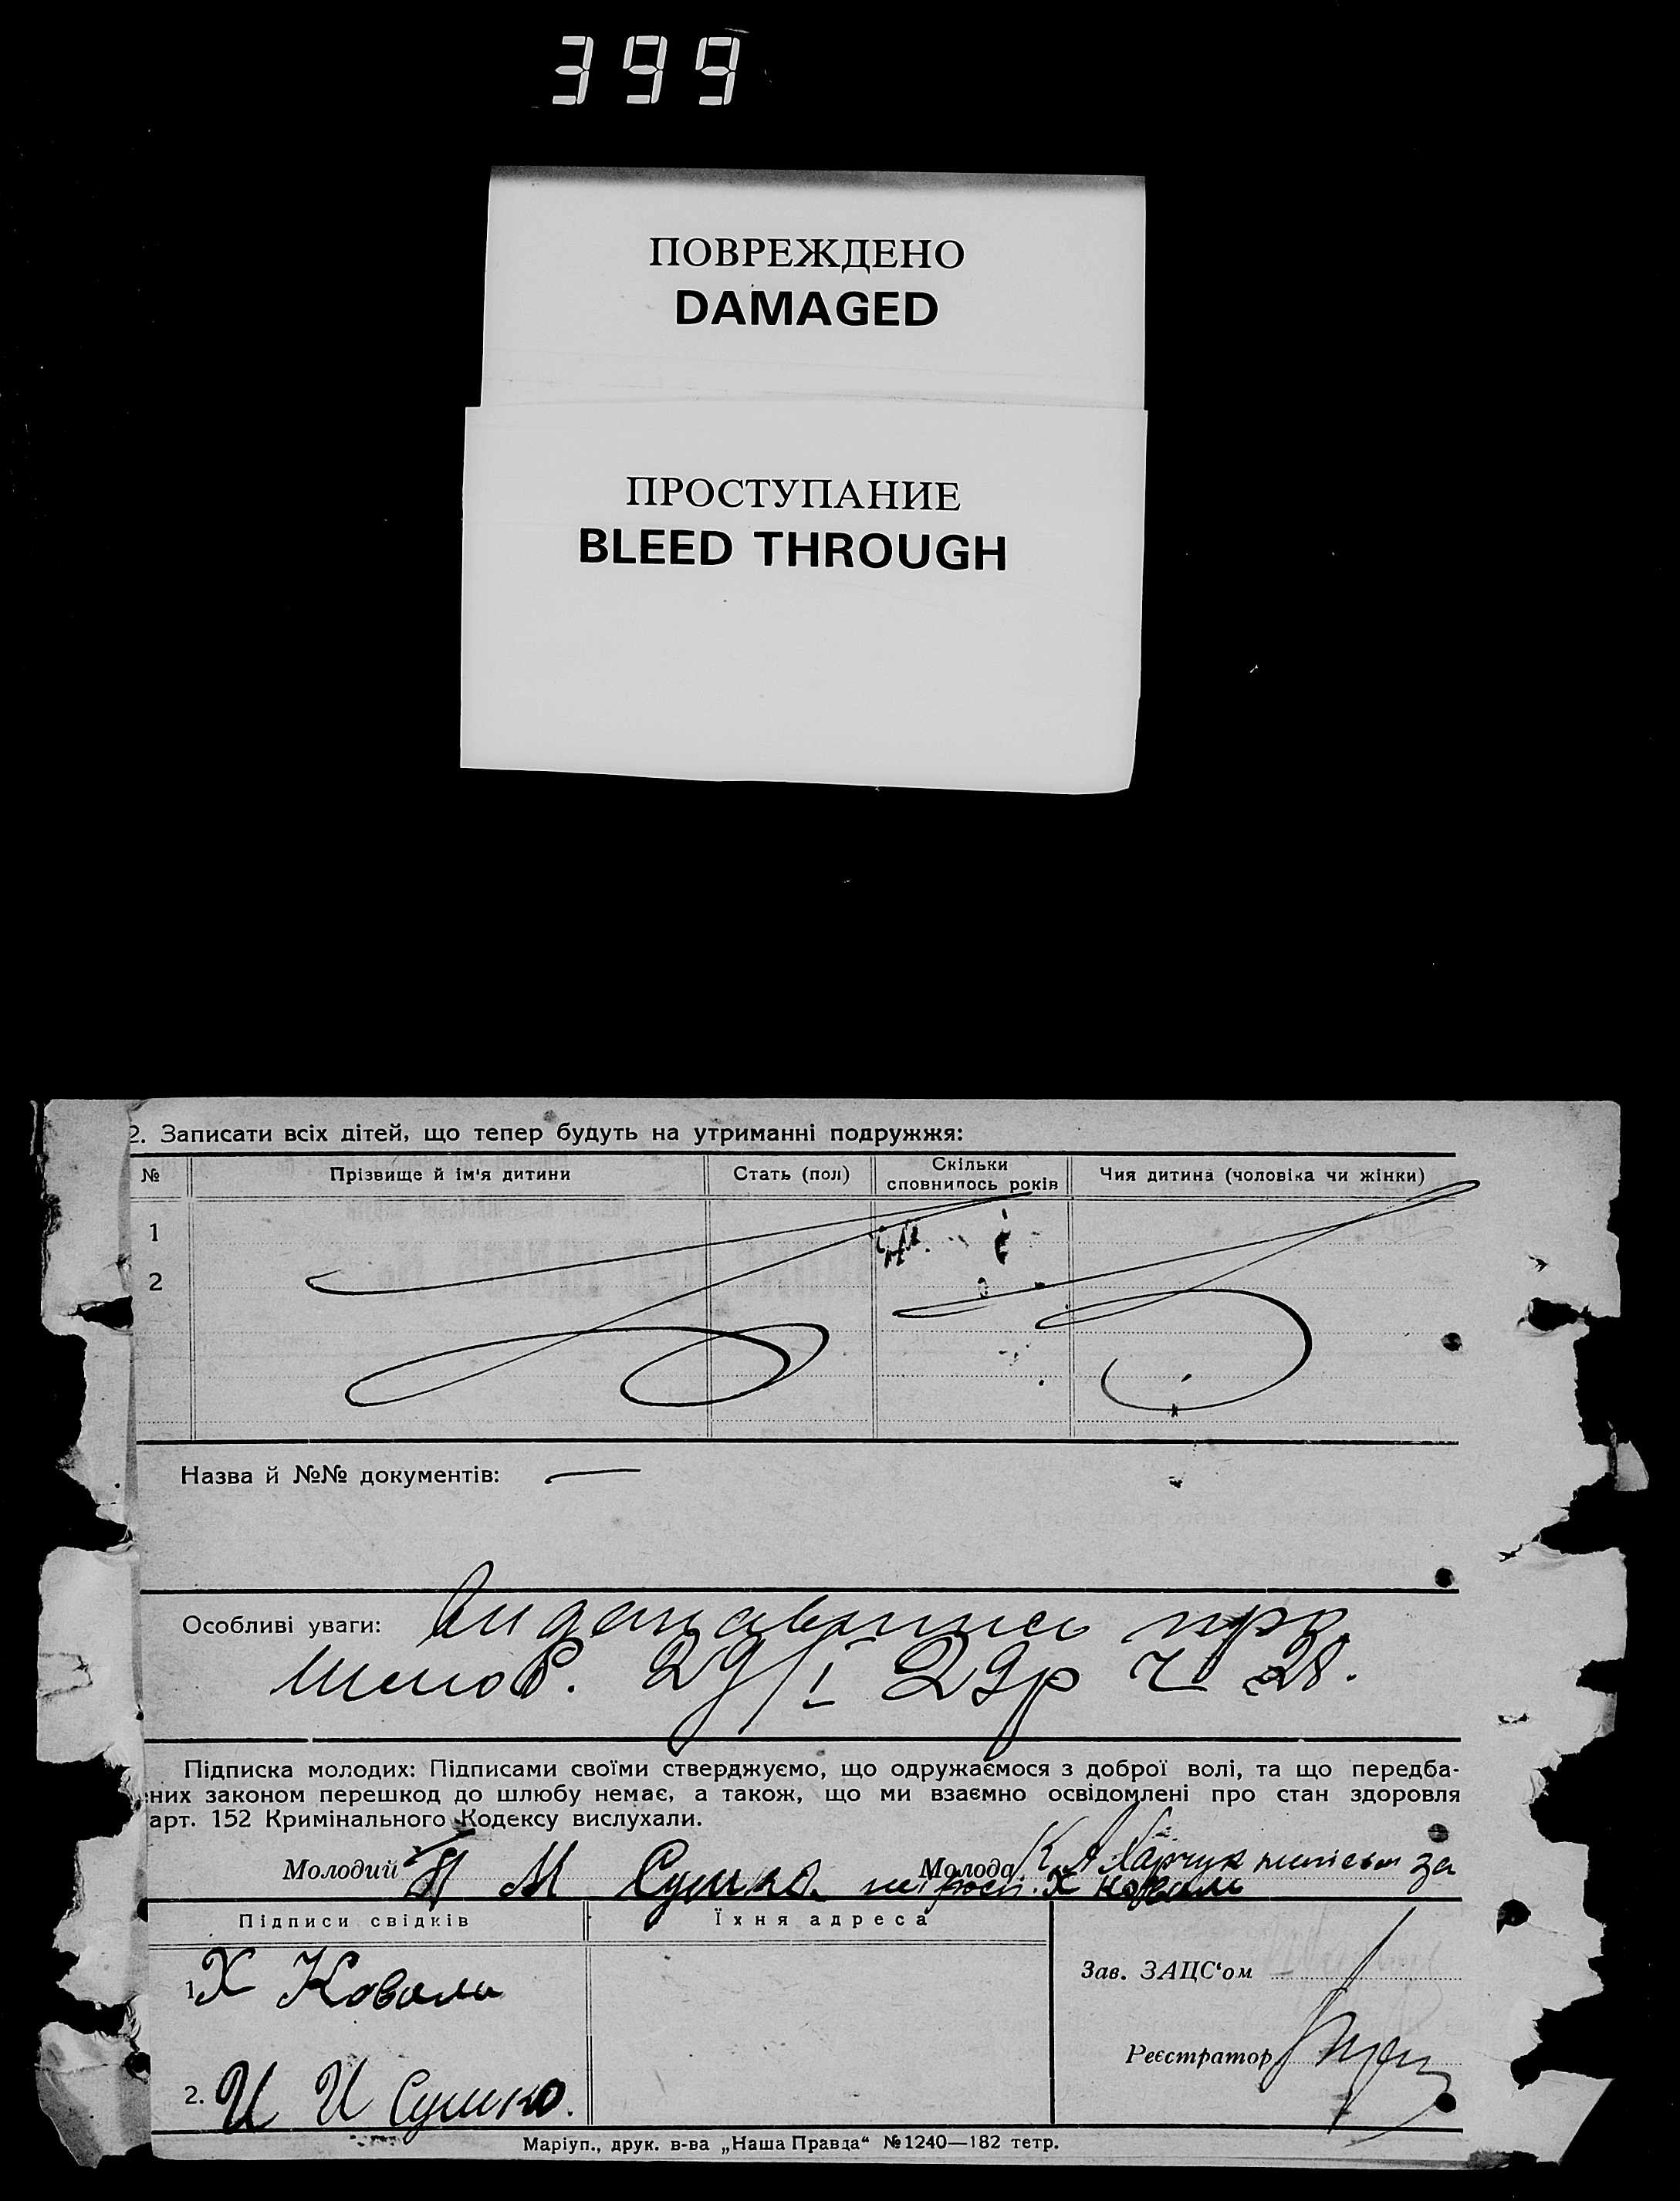 399
ПОВРЕЖДЕНО
DAMAGED
ПРОСТУПАНИЕ
BLEED THROUGH
2. Записати всіх дітей, що тепер будуть на утриманні подружжя:
№ Прізвище й ім'я дитини Стать (пол) Скільки сповнилось років Чия дитина (чоловіка чи жінки)
1
2
Назва й №№ документів: —
Особливі уваги:
29/I 29р ч 28.
Підписка молодих: Підписами своїми стверджуємо, що одружаємося з доброї волі, та що передба-
них законом перешкод до шлюбу немає, а також, що ми взаємно освідомлені про стан здоровля
арт. 152 Кримінального Кодексу вислухали.
Молодий М Сушко Молода К А Харчук за
Х Коваль
Підписи свідків Їхня адреса
1. Х Коваль
Зав. ЗАЦС'ом
Реєстратор
2. И И Сушко.
Маріуп., друк. в-ва „Наша Правда“ №1240—182 тетр.